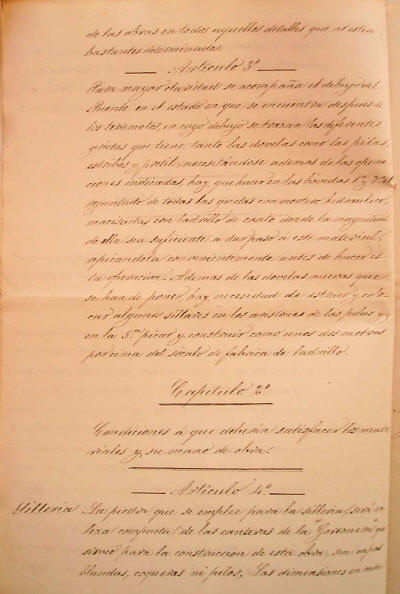 de las obras en todos aquellos detalles que no esten
bastantes determinados.
Articulo 3º
Para mayor claridad se acompaña el dibujo del
Puente en el estado en que se encuentra despues de
los terremotos, en cuyo dibujo se trazan las diferentes
grietas que tiene tanto las dovelas como las pilas,
estribos y pretil; necesitándose ademas de las opera
ciones indicadas, hay que hacer en las bóvedas 1ª y
rejuntado de todas las grietas con mortero hidraulico,
macizadas con ladrillo de canto donde la magnitud
de ella sea suficiente a dar paso á este material,
apicándola convenientemente antes de hacer es
ta operacion. Ademas de las dovelas nuevas que
se han de poner, hay necesidad de estraer y colo
car algunos sillares en los aristones de las pilas y
en la 5ª picar y construir como unos dos metros
por cima del zócalo de fabrica de ladrillo.
Capitulo 2º
Condiciones á que deberán satisfacer los mate
riales y su mano de obra.
Articulo 4º
Silleria La piedra que se emplee para la silleria, será ca
liza compacta, de las canteras de la que
sirvió para la construccion de esta obra, sin capas
blandas, coqueras ni pelos. Las dimensiones en